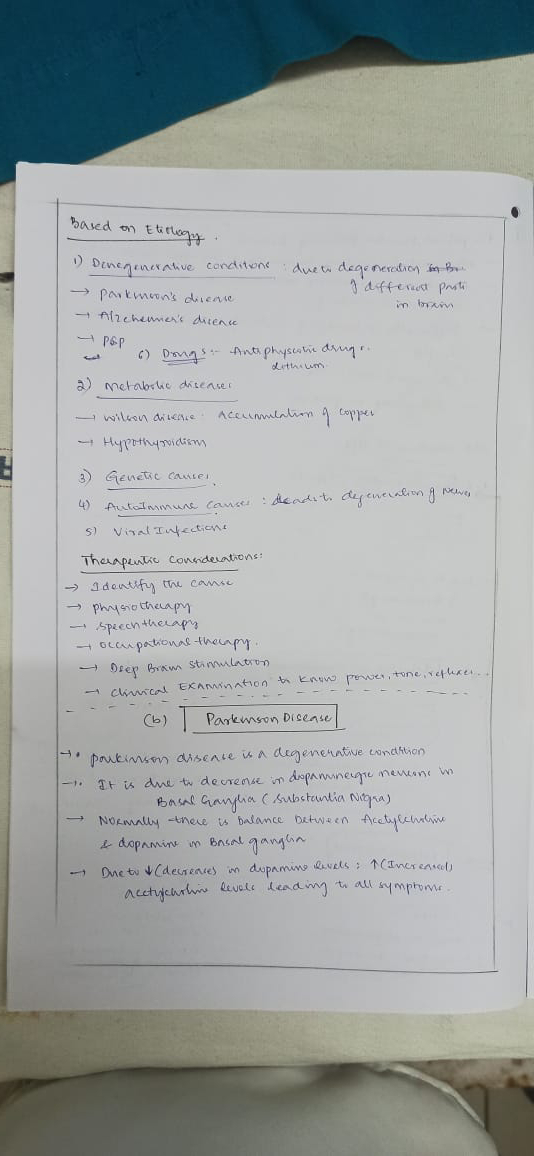 Based on Etiology.
1) Denegenerative conditions : due to degeneration
of different parts
in brain
→ Parkinson's disease
→ Alzehemier's disease
→ PSP
6) Drugs :- Antiphyscotic drugs.
Lithium.
2) Metabolic diseases
→ Wilson disease : Accumulation of copper
→ Hypothyroidism
3) Genetic causes.
4) AutoImmune causes : Leads to degeneration of Nerves
5) Viral Infections
Therapeutic Considerations:
→ Identify the cause
→ physiotherapy
→ Speech therapy
→ occupational therapy.
→ Deep Brain Stimulation
→ clinical EXAMINATION to know power, tone, reflexes...
(b) Parkinson Disease
→ • parkinson disease is a degenerative condition
→ • It is due to decrease in dopaminergic neurons in
Basal Ganglia (Substantia Nigra)
→ Normally there is balance between Acetylcholine
& dopamine in Basal ganglia
→ Due to ↓(decrease) in dopamine levels ; ↑(Increased)
acetylcholine levels leading to all symptoms.